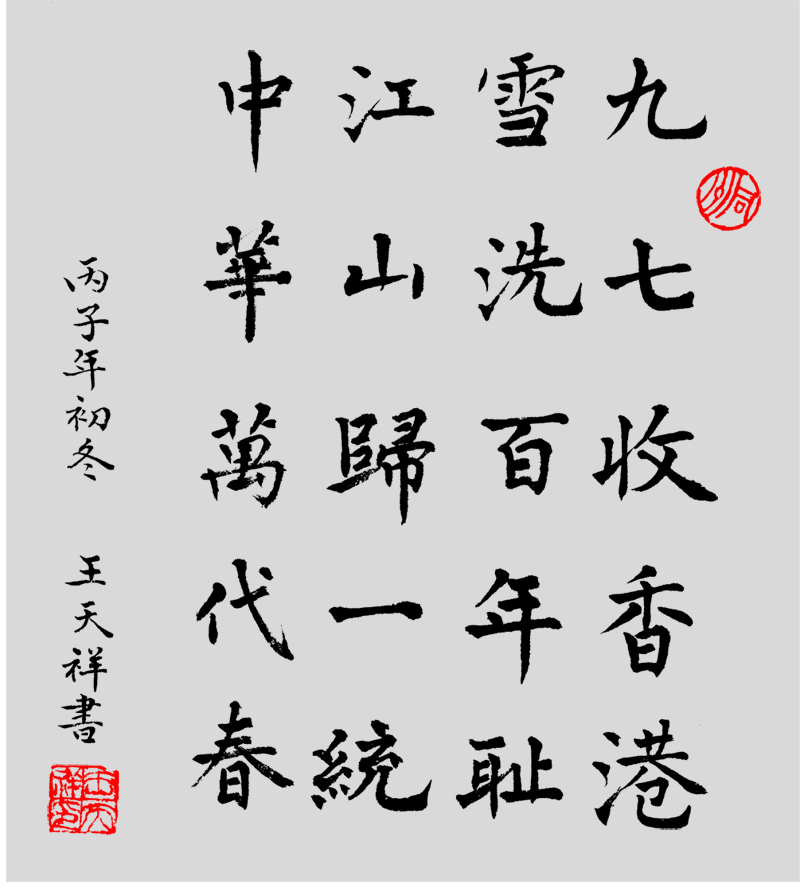 九七收香港
雪洗百年耻
江山歸一統
中華萬代春
丙子年初冬 王天祥書